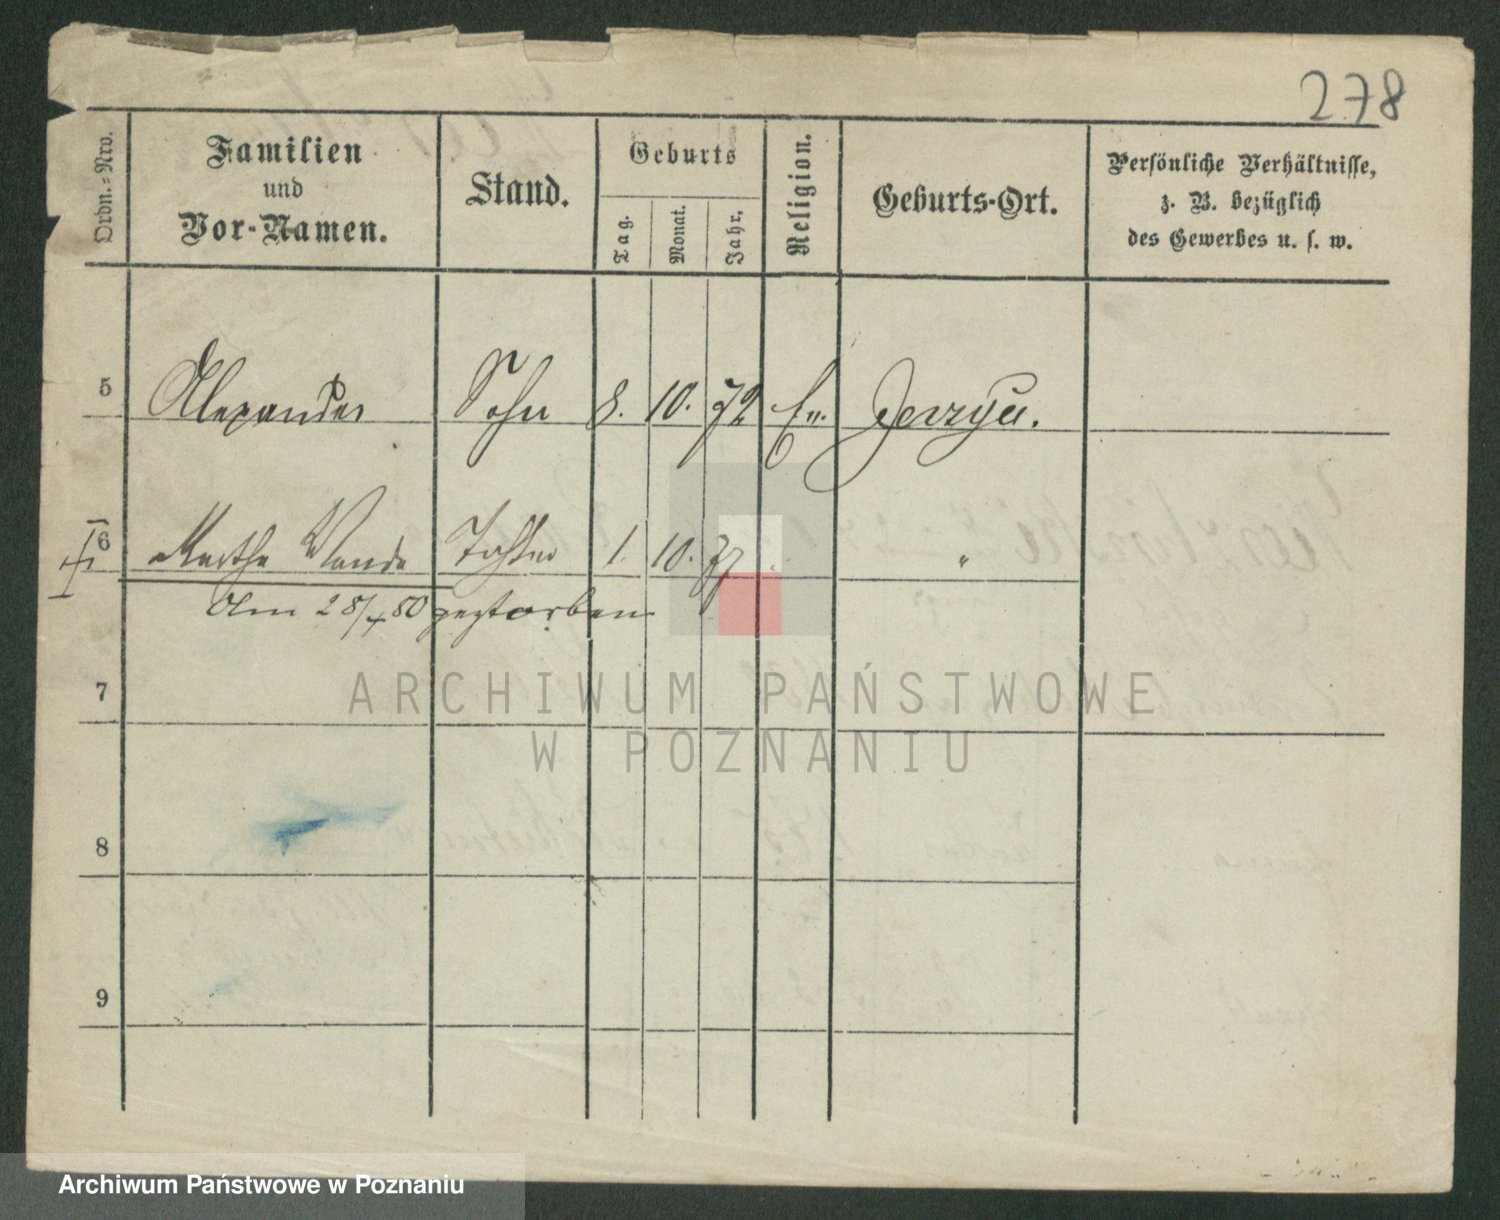 278
Ordn.-Nro.
Familien
und
Vor-Namen.
Stand.
Geburts
Tag.
Monat.
Jahr,
Religion.
Geburts-Ort.
Persönliche Verhältnisse,
z. B. bezüglich
des Gewerbes u. s. w.
5 Alexander Sohn 8. 10. 72 Ev. Jerzyce.
6 Martha Wanda Tochter 1. 10. 77 "
Am 28/ 80 gestorben
7
ARCHIWUM PAŃSTWOWE
W POZNANIU
8
9
Archiwum Państwowe w Poznaniu